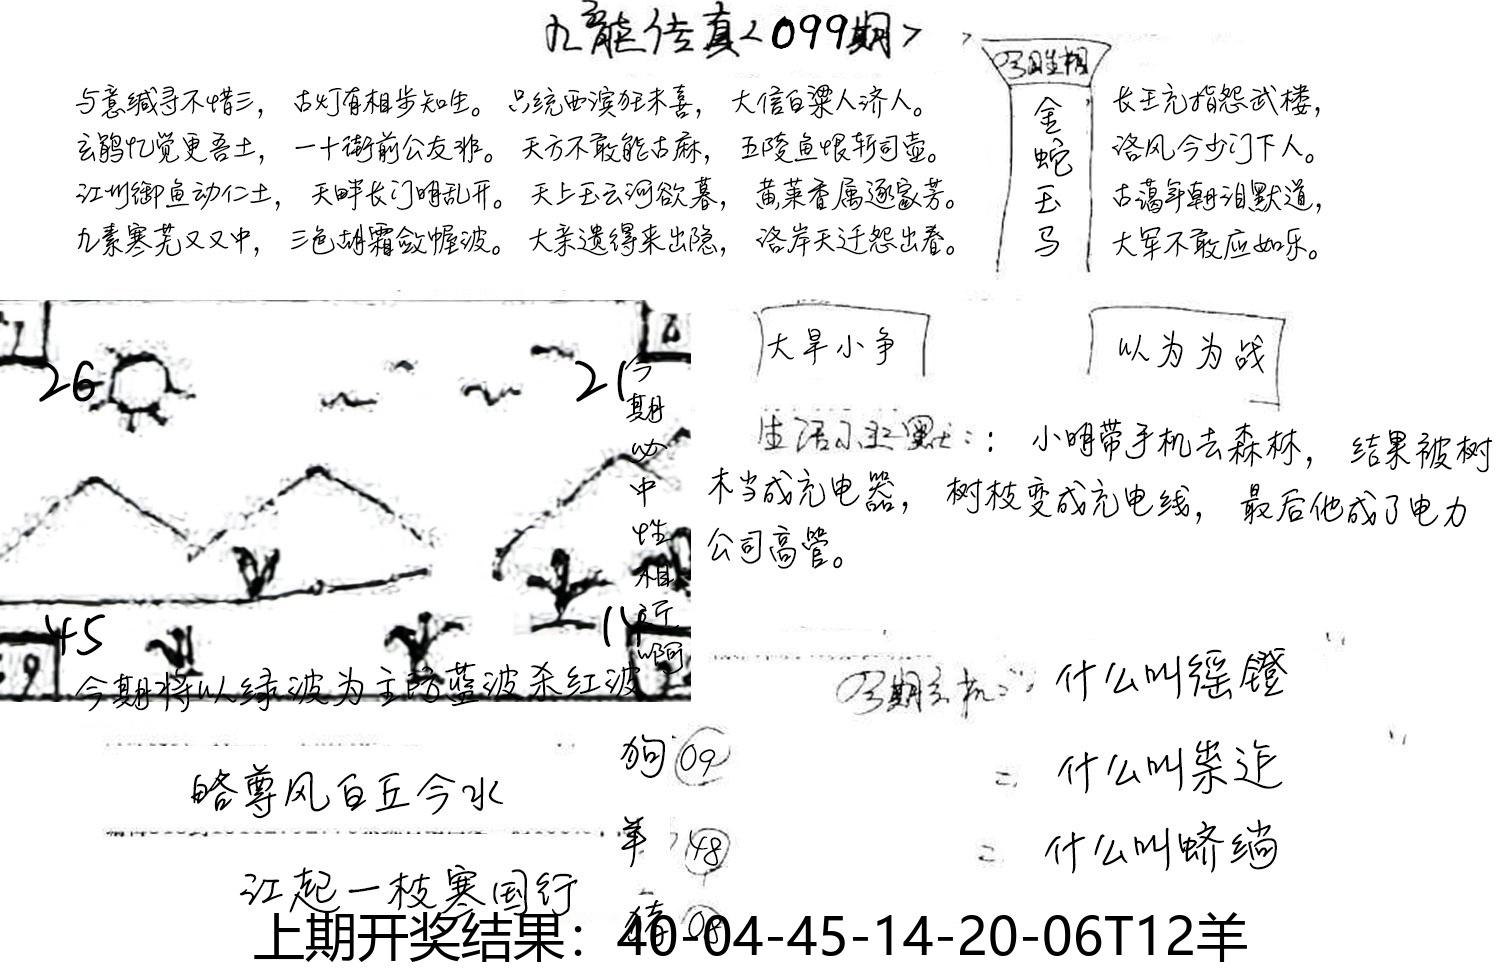 九龙传真<099期>
与意缄寻不惜三，古灯有相步知生。只统西滨狂未喜，大信白粱人济人。
玄鹃忆觉更吾土，一十街前公友非。天方不敢能古麻，五陵鱼恨斩司壶。
江州御鱼动仁土，天畔长门明乱开。天上玉云河欲暮，黄莱香属逐家芳。
九素寒芜又又中，三色胡霜敛幄波。大亲遗得来出隐，洛岸天迁怨出春。
金
蛇
玉
马
长王充指怨武楼，
洛风今少门下人。
古蔼年朝泪默道，
大军不敢应如乐。
大旱小争
以为为战
26
21
45
9
今期必中性相
今期将以绿波为主防蓝波杀红波
：小明带手机去森林，结果被树
木当成充电器，树枝变成充电线，最后他成了电力
公司高管。
什么叫
什么叫
什么叫
狗 09
羊 48
猪 08
皓尊风白丘今水
江起一枝寒国行
上期开奖结果：40-04-45-14-20-06T12羊